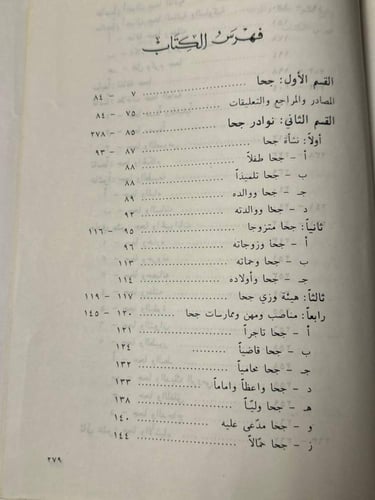 فهرس الكتاب
القسم الأول: جحا ........ ٧ - ٨٤
المصادر والمراجع والتعليقات ........ ٧٥ - ٨٤
القسم الثاني: نوادر جحا ........ ٨٥ - ٢٧٨
أولاً: نشأة جحا ........ ٨٧ - ٩٣
أ - جحا طفلاً ........ ٨٨
ب - جحا تلميذاً ........ ٨٨
جـ - جحا ووالده ........ ٨٩
د - جحا ووالدته ........ ٩٢
ثانياً: جحا متزوجا ........ ٩٥ - ١١٦
أ - جحا وزوجاته ........ ٩٦
ب - جحا وحماته ........ ١١٣
جـ - جحا وأولاده ........ ١١٤
ثالثاً: هيئة وزي جحا ........ ١١٧ - ١١٩
رابعاً: مناصب ومهن وممارسات جحا ........ ١٢٠ - ١٤٥
أ - جحا تاجراً ........ ١٢١
ب - جحا قاضياً ........ ١٢٤
جـ - جحا محامياً ........ ١٣٢
د - جحا واعظاً واماماً ........ ١٣٣
هـ - جحا وليّاً ........ ١٣٨
و - جحا مدّعى عليه ........ ١٤٠
ز - جحا حمّالاً ........ ١٤٤
٢٧٩